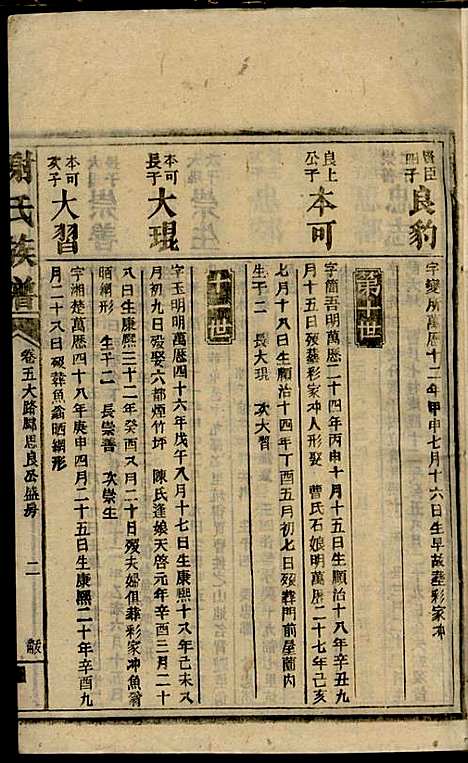 賢臣四子
良豹
字變成萬曆十二年甲申七月十六日生早故墓彩家冲
第十世
良上公子
本可
字簡吾明萬曆二十四年丙申十月十五日生順治十八年辛丑九
月十五日歿墓彩家冲人形 娶 曹氏石娘明萬曆二十七年己亥
七月十八日生順治十四年丁酉五月初七日歿葬門前屋菌内
生子二 長大琨 次大習
十一世
本可長子
大琨
字玉明明萬曆四十六年戊午八月十七日生康熙十八年己未又
月初九日歿娶六都煙竹坪 陳氏逢娘天啓元年辛酉三月二十
八日生康熙三十二年癸酉又月二十日歿夫婦俱葬彩家冲魚翁
晒網形 生子二 長崇善 次崇生
本可次子
大習
字湘楚萬曆四十八年庚申四月二十五日生康熙二十年辛酉九
月二十八日歿葬魚翁晒網形
謝氏族譜
卷五大路歸思良公盛房
二